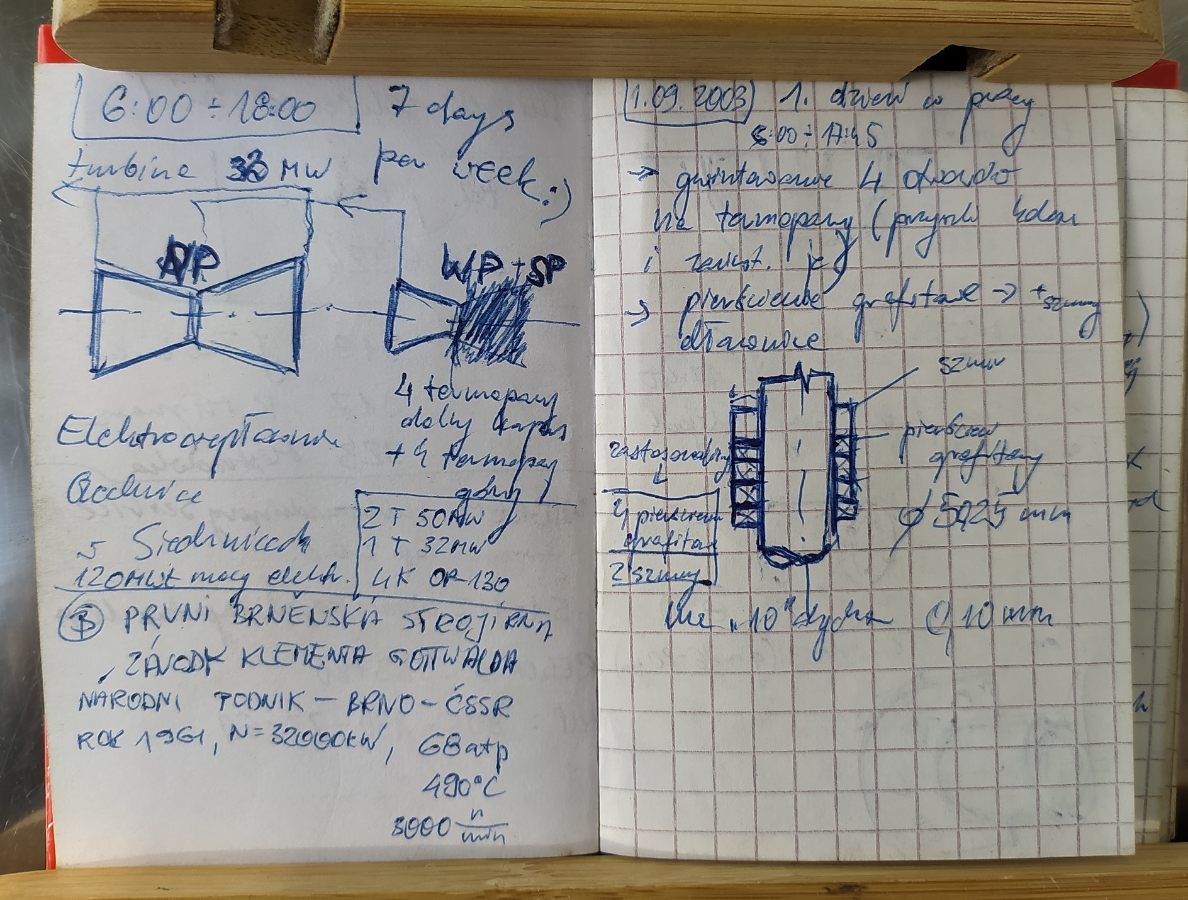 6:00 ÷ 18:00 7 days
per week :)
turbine 33 MW
NP
WP + SP
4 termopary
dolny
+ 4 termopary
góry
Elektrociepłownia
w Siedmiu
2 T 50MW
1 T 32MW
4K OR-130
120MWt mocy elektr.
PRVNI BRNĚNSKÁ STROJÍRNA
ZÁVODY KLEMENTA GOTTWALDA
NÁRODNI PODNIK – BRNO – ČSSR
ROK 1961, N=32000kW, 68 atp
490°C
3000 n/min
1.09.2003 1. dzień w pracy
6:00 ÷ 17:45
→ gwintowanie 4 otworów
na termopary (
i
→ pierścienie grafitowe → + sznury
dławnice
sznur
pierścień
grafitowy
zastosowaliśmy
4 pierścienie
grafitowe
2 sznury
ø 50,25 mm
"10" 10 mm